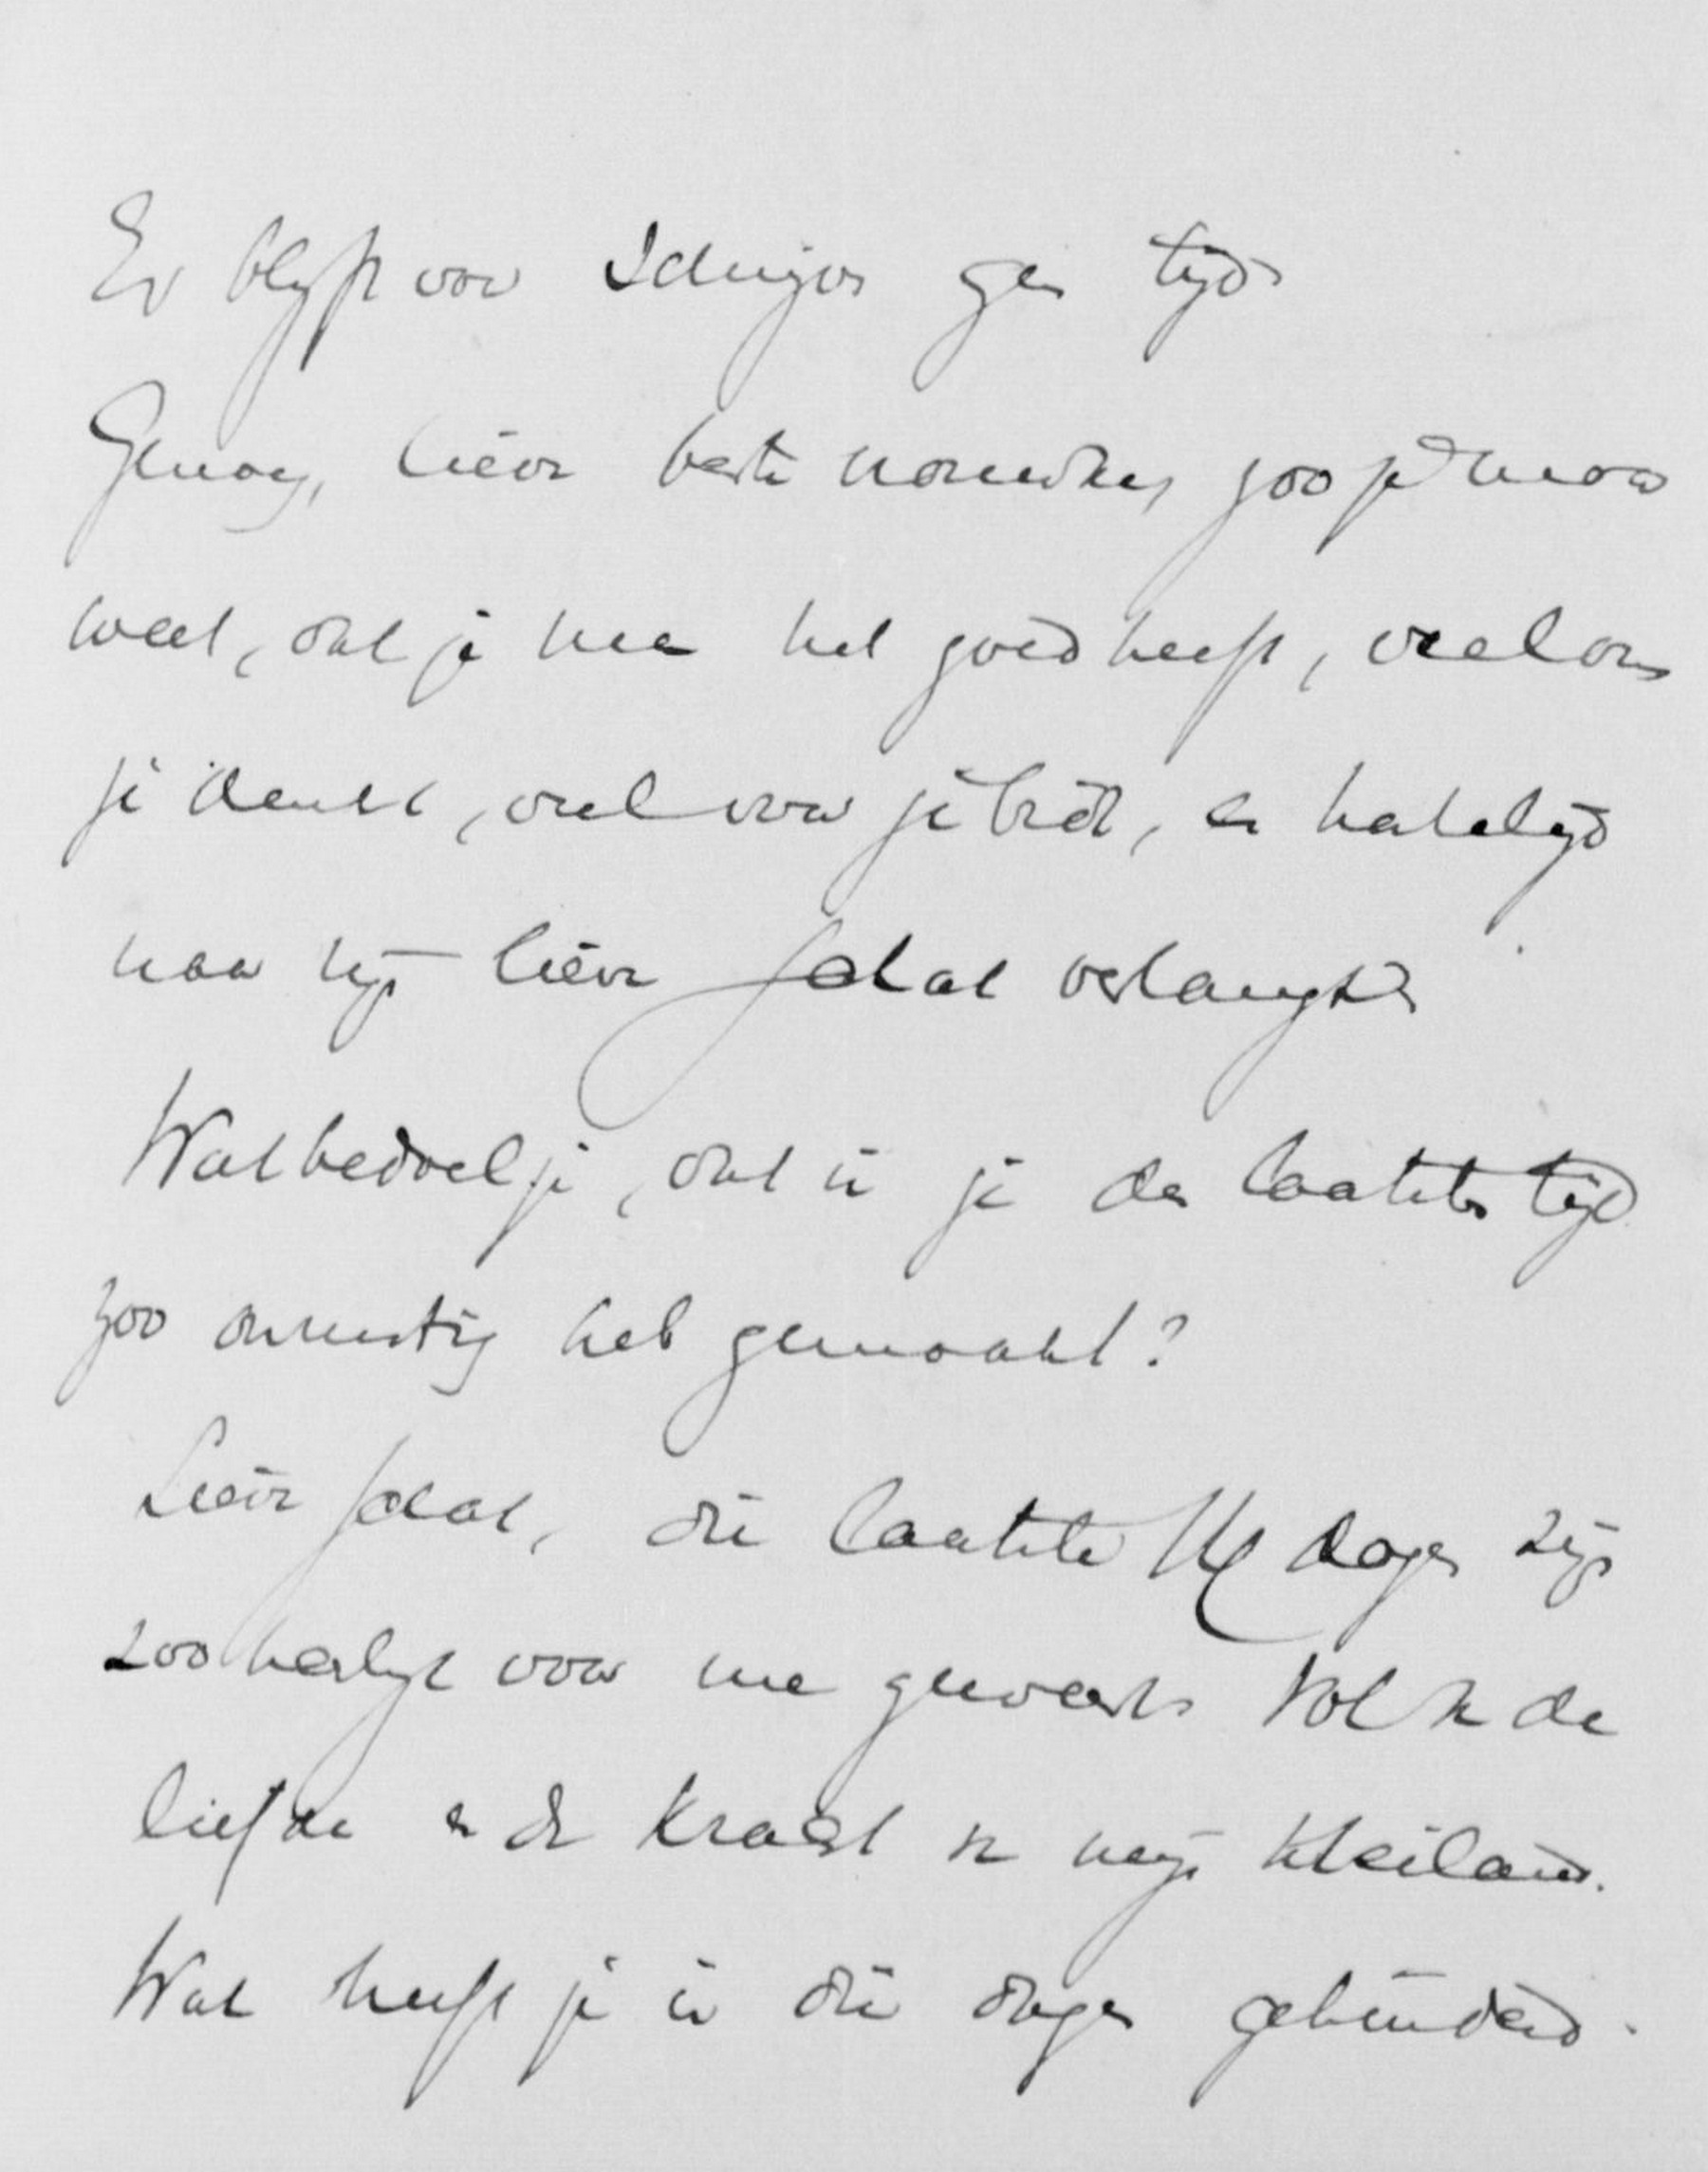 Er blyft voor schrijven geen tijd
Genoeg, lieve beste zoo je maar
weet, dat je man het goed heeft, veel om
je denkt, veel voor je bidt, en hartelijk
naar zijn lieve schat verlangt
Wat bedoel je, dat ik je den laatsten tijd
zoo onrustig heb gemaakt?
Lieve schat, die laatste dagen zijn
zoo heerlijk voor me geweest. Vol van de
liefde en de kracht van mijn Heiland.
Wat heeft je in die dagen gehinderd.